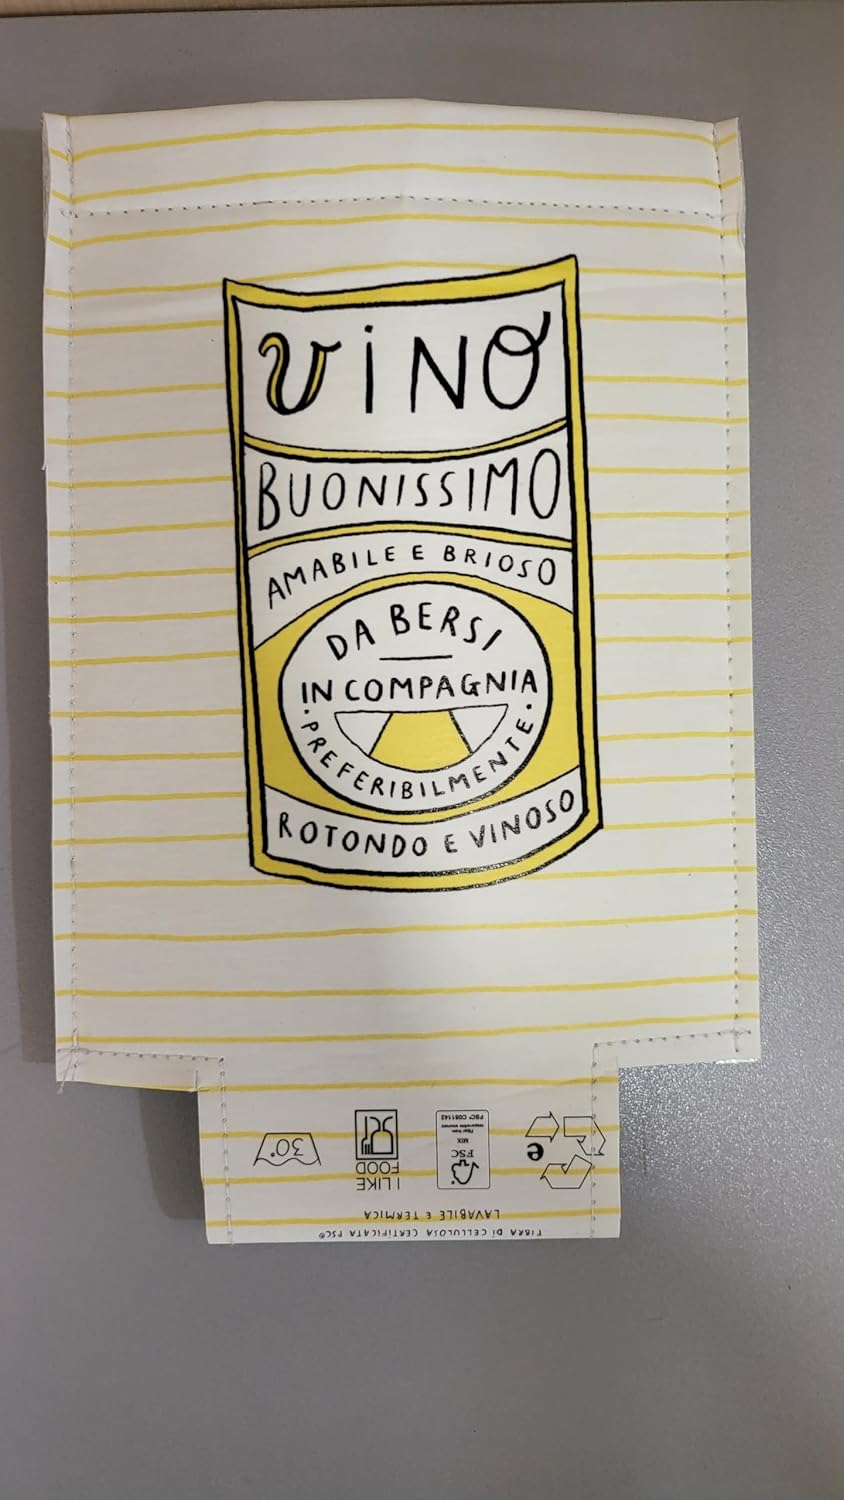 VINO
BUONISSIMO
AMABILE E BRIOSO
DA BERSI
IN COMPAGNIA
· PREFERIBILMENTE ·
ROTONDO E VINOSO
FIBRA DI CELLULOSA CERTIFICATA FSC®
LAVABILE E TERMICA
e
FSC
MIX
Fiber from
responsible sources
FSC® C051142
I LIKE
FOOD
30°